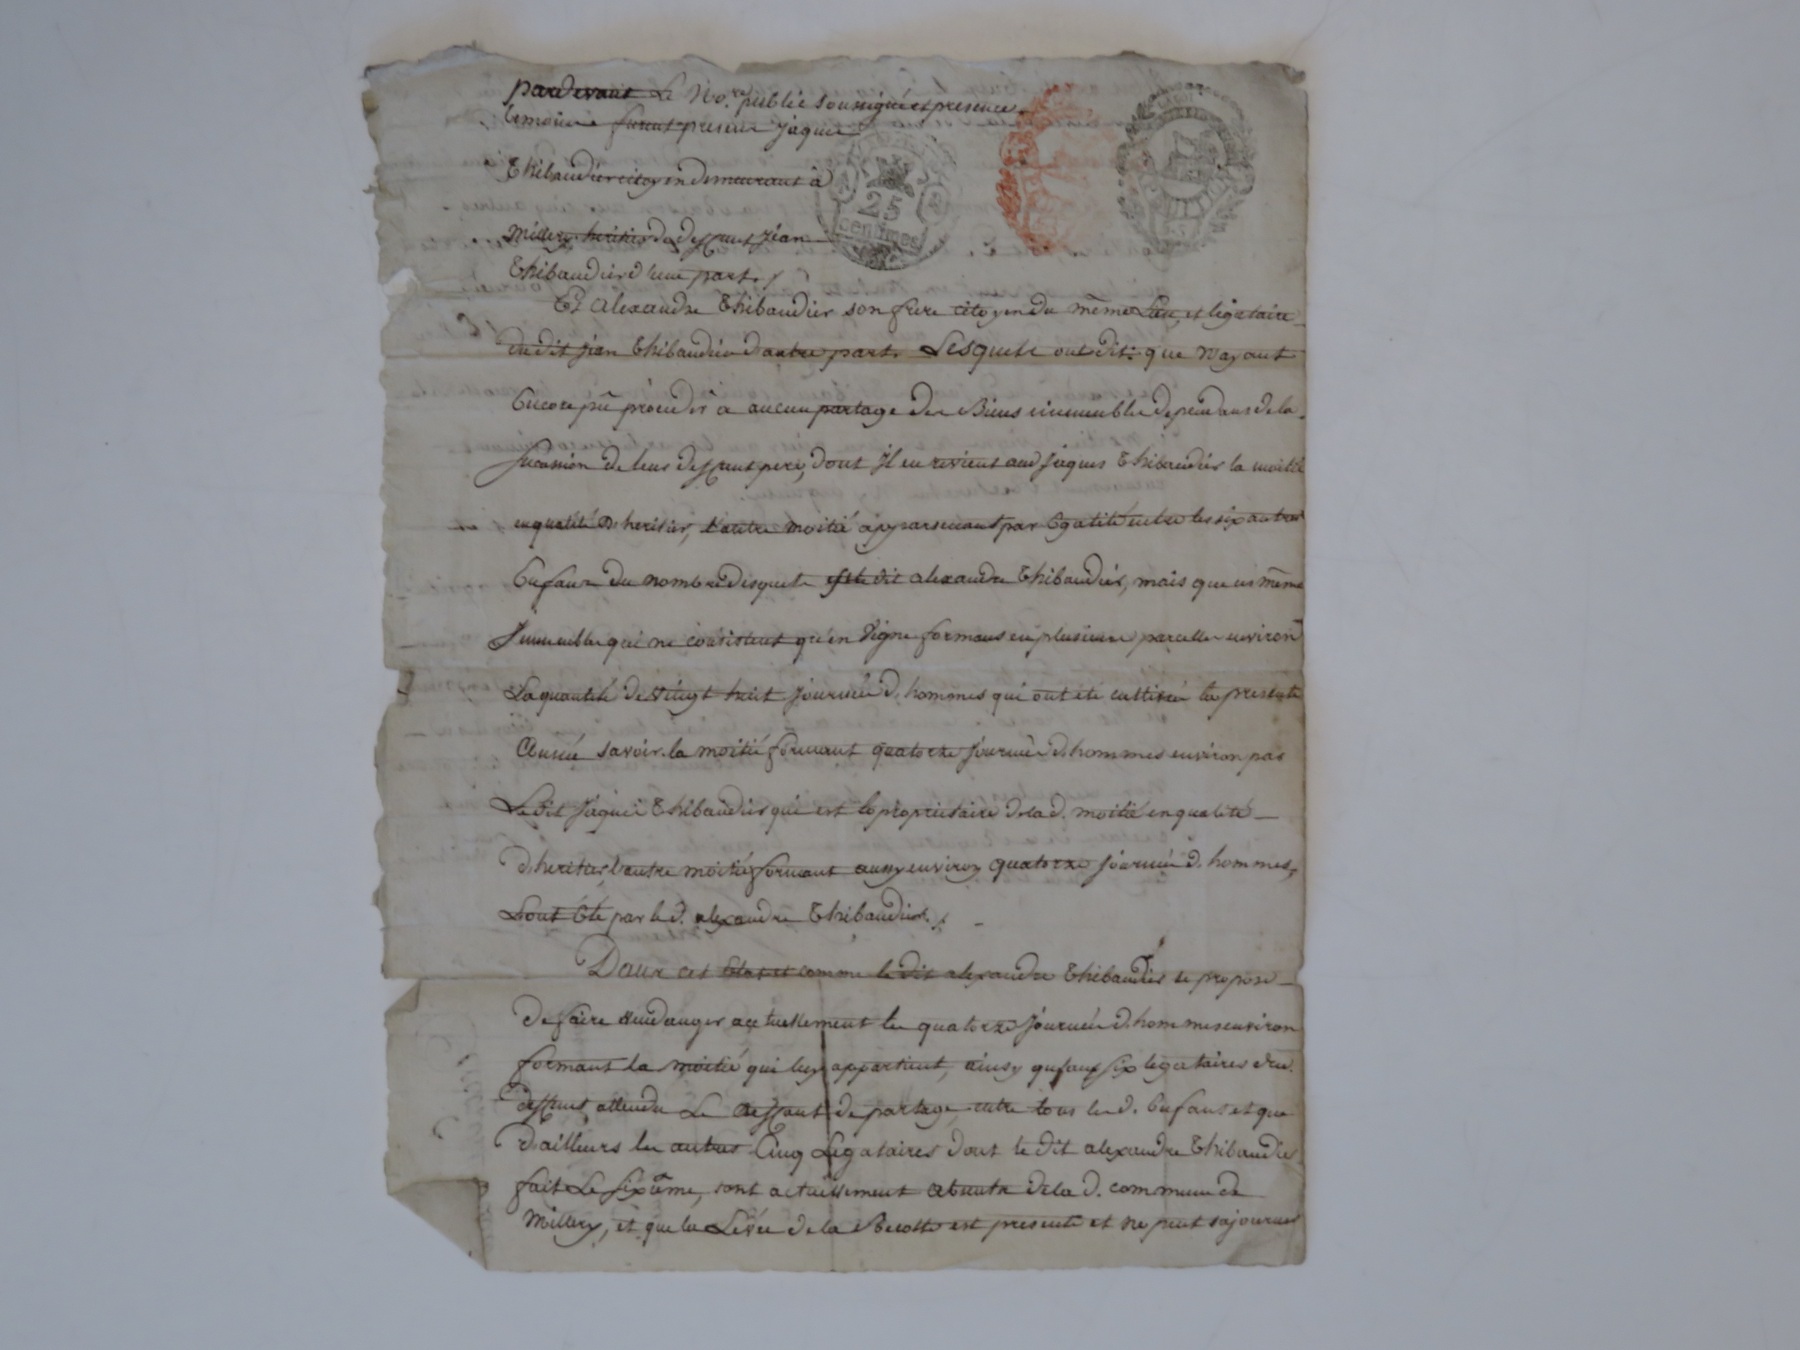 pardevant Le No.re public soussigné et presence
temoins furent presens Jâques
Thibaudier citoyen demeurant à
Millery, heritier de deffunt Jean
Thibaudier d'une part./
25
centimes
Et Alexandre Thibaudier son frere citoyen du même Lieu, et légataire
du dit Jean Thibaudier d'autre part. Lesquels ont dit: que n'ayant
Encore pû procéder à aucun partage des Biens immeubles dependans de la
succession de leur deffunt pere, dont Il en revient aud Jâques Thibaudier la moitié
en qualité d'heritier, L'autre moitié appartenant par Egalité entre les six autres
Enfans du nombre desquels est le dit alexandre Thibaudier, mais que ces mêmes
Immeubles qui ne consistent qu'en Vigne formans en plusieurs parcelles environ
La quantité de vingt huit Journée d'hommes qui ont été cultivée la presente
Année savoir. la moitié formant quatorze Journée d'hommes environ par
Le dit Jâques Thibaudier qui est le proprietaire de la d. moitié en qualité
d'heritier, l'autre moitié formant aussy environ quatorze Journée d'hommes,
L'ont Eté par le d. alexandre Thibaudier./.
Dans cet Etat et comme le dit alexandre Thibaudier se propose
De faire vendanger actuellement les quatorze Journée d'hommes environ
formant la moitié qui luy appartient, ainsy qu'aux six legataires dud.
deffunt, attendu Le deffaut de partage entre tous les d. Enfans et que
D'ailleurs les autres Cinq Légataires dont le dit alexandre Thibaudier
fait Le sixième, sont actuellement absents de la d. commune de
Millery, et que la Levée de la Recolte est presente et ne peut s'ajourner